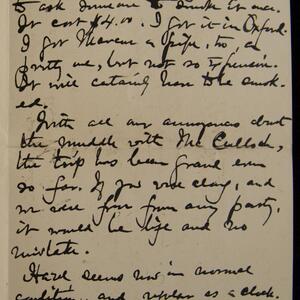 to ask someone to smoke it once.
It cost $4.00. I got it in Oxford.
I got Marcus a pipe, too, a
pretty one, but not so expensive.
It will certainly have to be smok-
ed.
With all my annoyances about
the muddle with McCulloch,
the trip has been grand even
so far. If you were along, and
we were free from any party,
it would be life and no
mistake.
Hazel seems now in normal
condition, and regular as a clock.